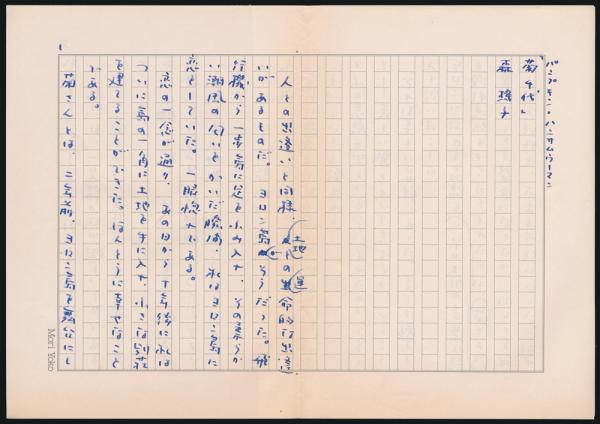 「パンプキン・ハンサムウーマン
菊千代」
森 瑤子
人との出逢いと同様、土地との運命的な出逢
いがあるものだ。ヨロン島がそうだった。飛
行機から一歩島に足をふみ入れ、その柔らか
い潮風の匂いをかいだ瞬間、私はヨロン島に
恋をしていた。一眼惚れである。
恋の一念が通り、あの日から年後に私は
ついに島の一角に土地を手に入れ、小さな別荘
を建てることができた。ほんとうに幸せなこと
である。
菊さんとは、二年前、ヨロン島を舞台にし
1
Mori Yoko